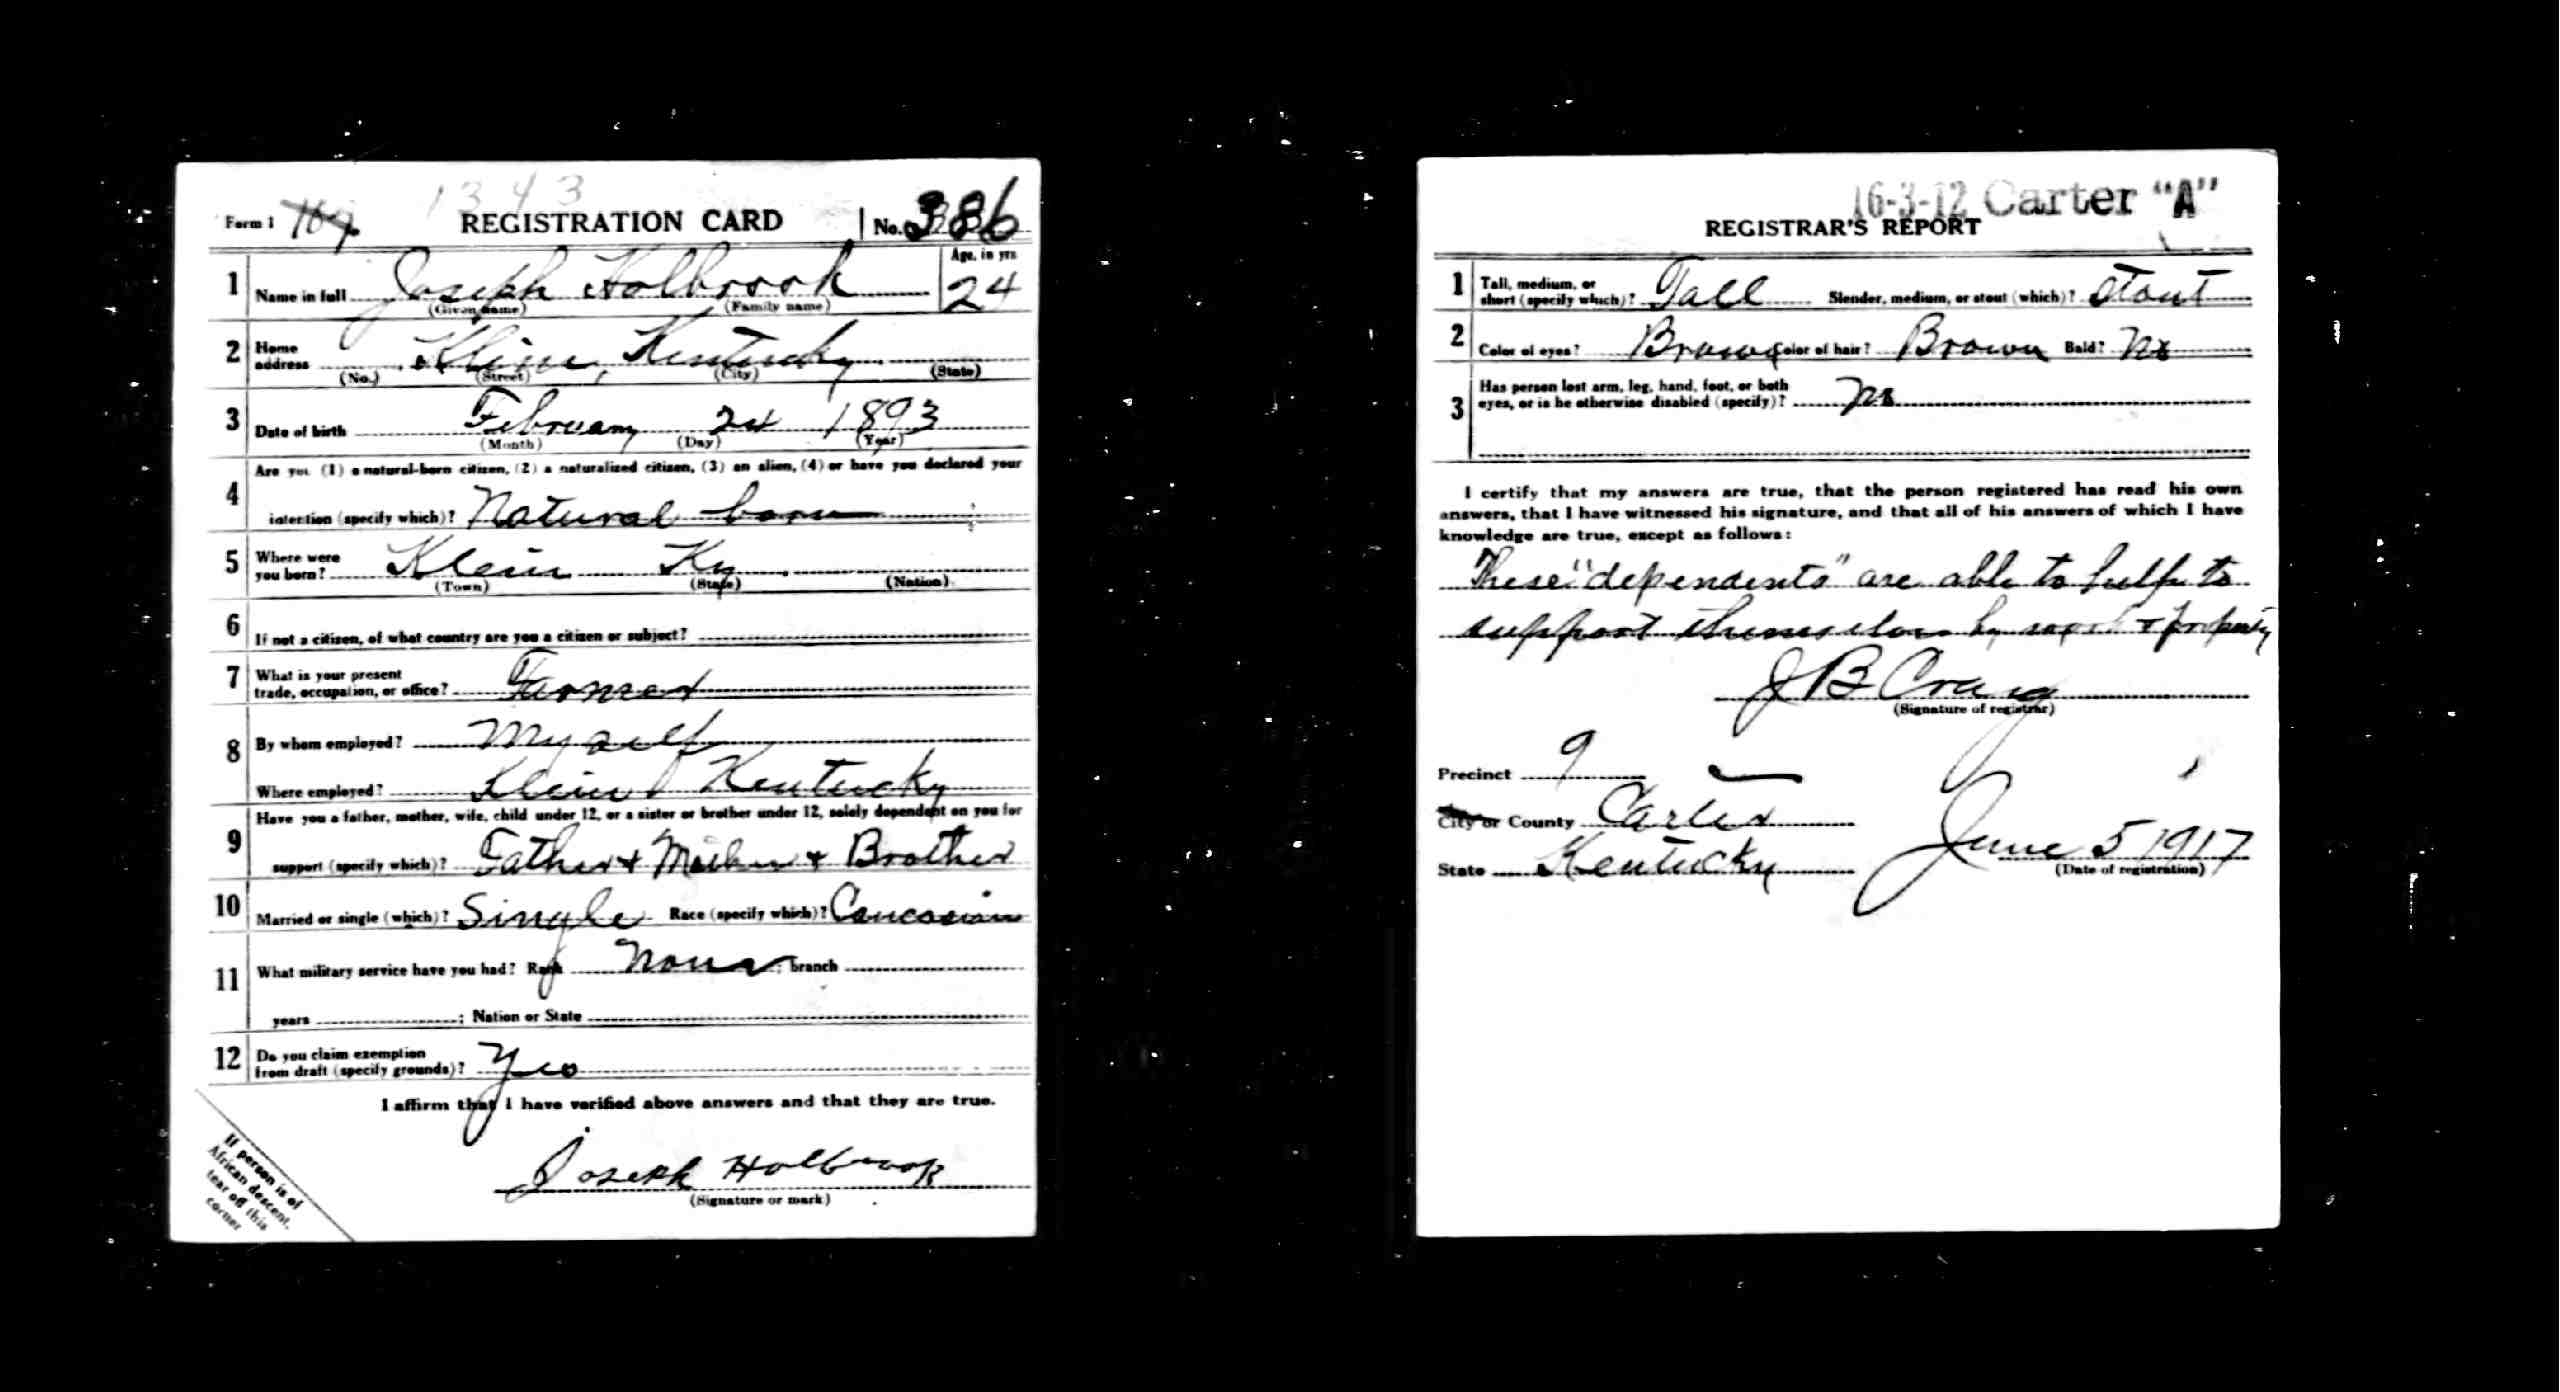 1343
Form 1 169 REGISTRATION CARD No. 386
1 Name in full Joseph Holbrook Age, in yrs. 24
(Given name) (Family name)
2 Home address Klein, Kentucky
(No.) (Street) (City) (State)
3 Date of birth February 24 1893
(Month) (Day) (Year)
4 Are you (1) a natural-born citizen, (2) a naturalized citizen, (3) an alien, (4) or have you declared your
intention (specify which)? Natural born
5 Where were you born? Klein Ky
(Town) (State) (Nation)
6 If not a citizen, of what country are you a citizen or subject?
7 What is your present
trade, occupation, or office? Farmer
8 By whom employed? My self
Where employed? Klein Kentucky
9 Have you a father, mother, wife, child under 12, or a sister or brother under 12, solely dependent on you for
support (specify which)? Father + Mother + Brother
10 Married or single (which)? Single Race (specify which)? Caucasian
11 What military service have you had? Rank None; branch
years ; Nation or State
12 Do you claim exemption
from draft (specify grounds)? Yes
I affirm that I have verified above answers and that they are true.
Joseph Holbrook
(Signature or mark)
If person is of
African descent,
tear off this
corner
16-3-12 Carter "A"
REGISTRAR'S REPORT
1 Tall, medium, or
short (specify which)? Tall Slender, medium, or stout (which)? Stout
2 Color of eyes? Brown Color of hair? Brown Bald? No
3 Has person lost arm, leg, hand, foot, or both
eyes, or is he otherwise disabled (specify)? No
I certify that my answers are true, that the person registered has read his own
answers, that I have witnessed his signature, and that all of his answers of which I have
knowledge are true, except as follows:
These "dependents" are able to help to
support themselves by work + property
J B Craig
(Signature of registrar)
Precinct 9
City or County Carter
State Kentucky June 5 1917
(Date of registration)